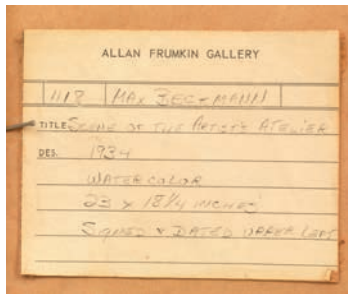 ALLAN FRUMKIN GALLERY
1118 MAX BECKMANN
TITLE SCENE OF THE ARTIST'S ATELIER
DES. 1934
WATERCOLOR
23 x 18 1/4 INCHES
SIGNED & DATED UPPER LEFT